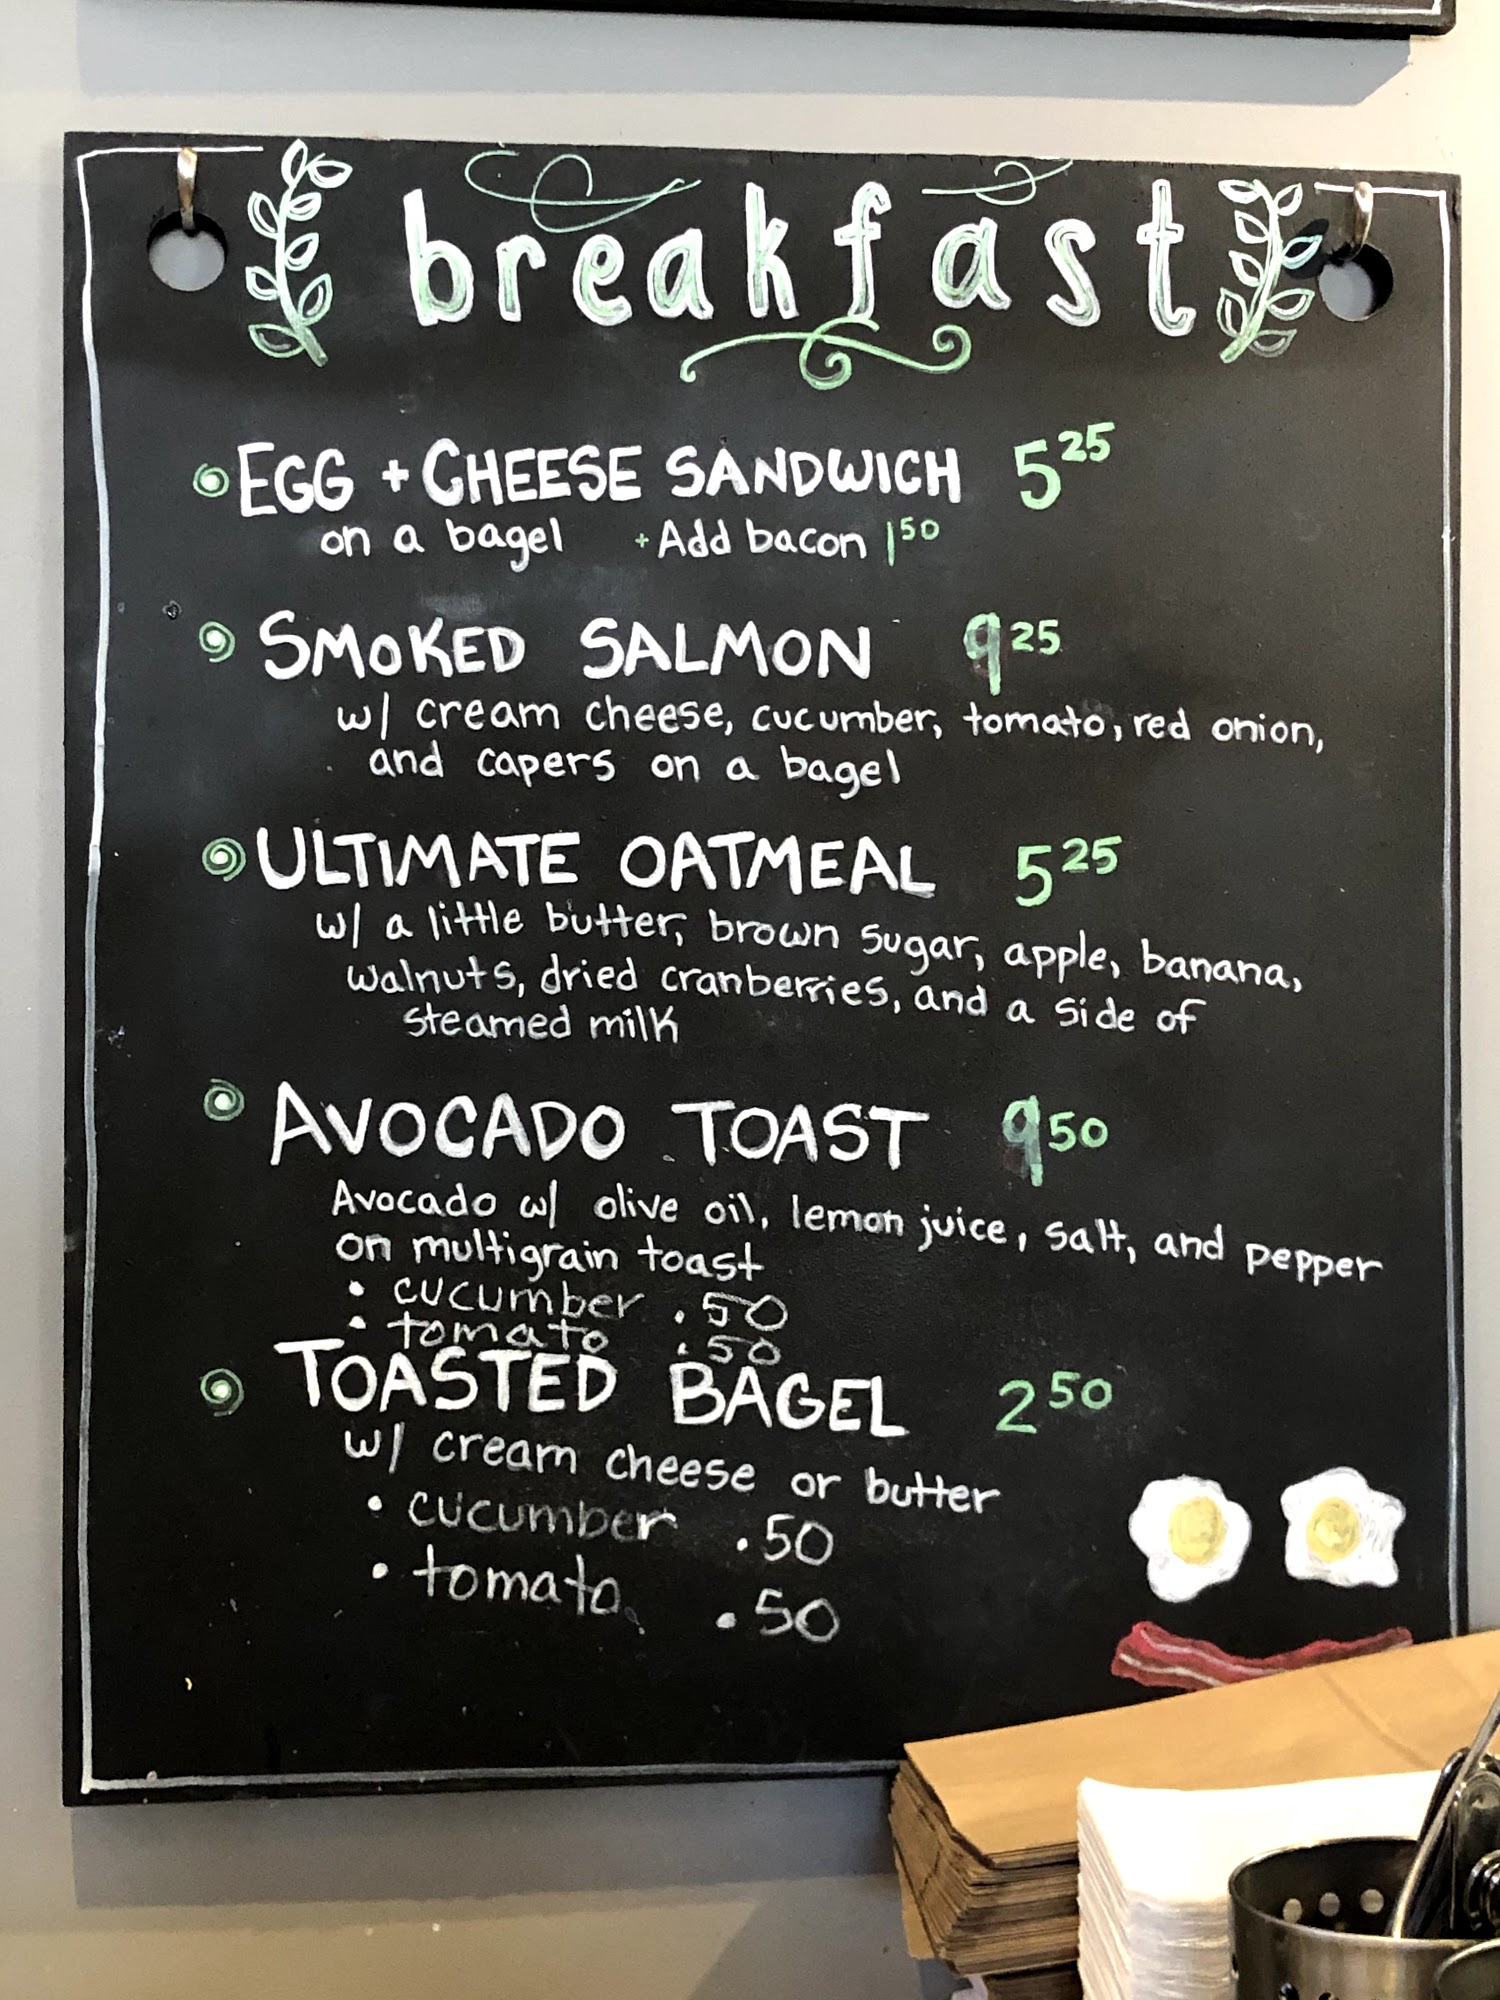 breakfast
EGG + CHEESE SANDWICH 5 25
on a bagel + Add bacon 1 50
SMOKED SALMON 9 25
w/ cream cheese, cucumber, tomato, red onion,
and capers on a bagel
ULTIMATE OATMEAL 5 25
w/ a little butter, brown sugar, apple, banana,
walnuts, dried cranberries, and a side of
steamed milk
AVOCADO TOAST 9 50
Avocado w/ olive oil, lemon juice, salt, and pepper
on multigrain toast
• cucumber .50
• tomato .50
TOASTED BAGEL 2 50
w/ cream cheese or butter
• cucumber .50
• tomato .50